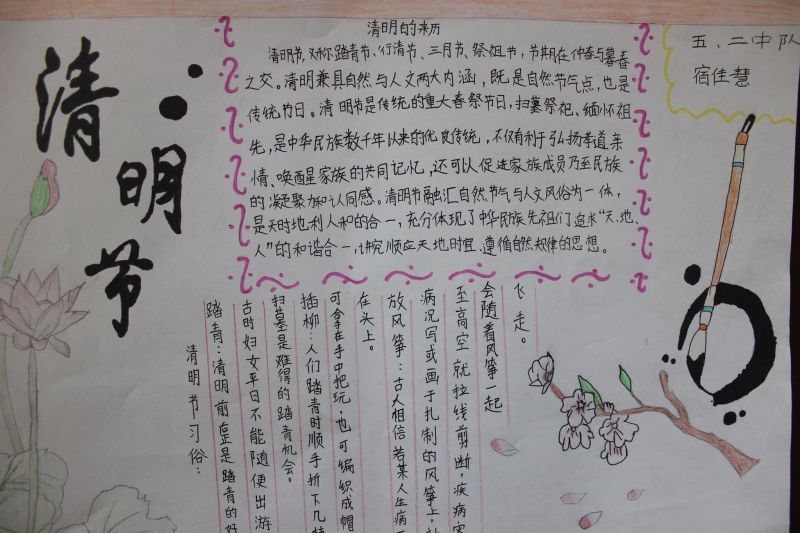 清明节
清明的来历
清明节,又称踏青节、行清节、三月节、祭祖节,节期在仲春与暮春
之交。清明兼具自然与人文两大内涵,既是自然节气点,也是
传统节日。清明节是传统的重大春祭节日,扫墓祭祀、缅怀祖
先,是中华民族数千年以来的优良传统,不仅有利于弘扬孝道亲
情、唤醒家族的共同记忆,还可以促进家族成员乃至民族
的凝聚力和认同感。清明节融汇自然节气与人文风俗为一体,
是天时地利人和的合一,充分体现了中华民族先祖们追求“天、地、
人”的和谐合一,讲究顺应天地时宜、遵循自然规律的思想。
五、二中队
宿佳慧
清明节习俗:
踏青:清明前后正是踏青的好
古时妇女平日不能随便出游
扫墓是难得的踏青机会。
插柳:人们踏青时顺手折下几枝
可拿在手中把玩,也可编织成帽
在头上。
放风筝:古人相信若某人生病
病况写或画于扎制的风筝上,
至高空就拉线剪断,疾病
会随着风筝一起
飞走。